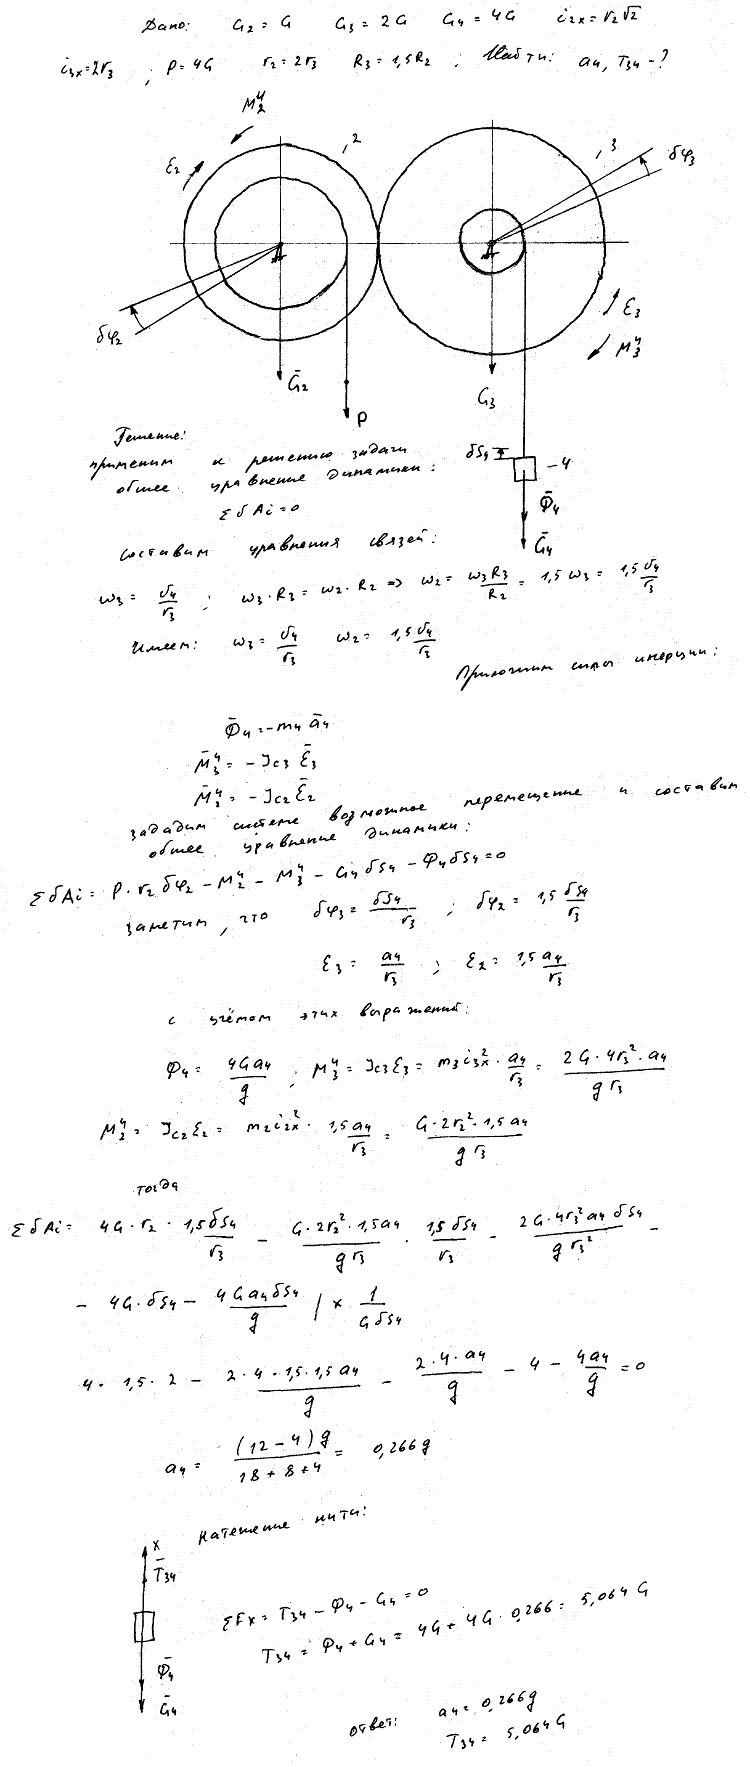 Дано: G₂ = G G₃ = 2G G₄ = 4G i₂ₓ = r₂√2
i₃ₓ = 2r₃ ; P = 4G r₂ = 2r₃ R₃ = 1,5R₂ ; Найти: a₄, T₃₄ - ?
M₂ᶸ
ε₂
, 2
, 3
δφ₃
δφ₂
ε₃
M₃ᶸ
Ḡ₂
P
G₃
δS₄
- 4
Φ̄₄
Ḡ₄
Решение:
применим к решению задачи
общее уравнение динамики:
ΣδAi = 0
Составим уравнения связей:
ω₃ = v₄/r₃ ; ω₃·R₃ = ω₂·R₂ => ω₂ = ω₃R₃/R₂ = 1,5 ω₃ = 1,5 v₄/r₃
Имеем: ω₃ = v₄/r₃ ω₂ = 1,5 v₄/r₃
Приложим силы инерции:
Φ̄₄ = -m₄ ā₄
M̄₃ᶸ = - Jc₃ ε̄₃
M̄₂ᶸ = - Jc₂ ε̄₂
зададим системе возможное перемещение и составим
общее уравнение динамики:
ΣδAi = P·r₂ δφ₂ - M₂ᶸ - M₃ᶸ - G₄δS₄ - Φ₄δS₄ = 0
заметим, что δφ₃ = δS₄/r₃ ; δφ₂ = 1,5 δS₄/r₃
ε₃ = a₄/r₃ ; ε₂ = 1,5 a₄/r₃
с учётом этих выражений:
Φ₄ = 4Ga₄/g ; M₃ᶸ = Jc₃ε₃ = m₃i₃ₓ² · a₄/r₃ = 2G·4r₃²·a₄/g r₃
M₂ᶸ = Jc₂ε₂ = m₂i₂ₓ² · 1,5a₄/r₃ = G·2r₂²·1,5a₄/g r₃
тогда
ΣδAi = 4G·r₂·1,5δS₄/r₃ - G·2r₂²·1,5a₄/g r₃ · 1,5δS₄/r₃ - 2G·4r₃²a₄δS₄/g r₃² -
- 4G·δS₄ - 4Ga₄δS₄/g | × 1/GδS₄
4·1,5·2 - 2·4·1,5·1,5a₄/g - 2·4·a₄/g - 4 - 4a₄/g = 0
a₄ = (12-4)g/18+8+4 = 0,266g
Натежение нити:
x
T̄₃₄
Φ̄₄
Ḡ₄
ΣFx = T₃₄ - Φ₄ - G₄ = 0
T₃₄ = Φ₄ + G₄ = 4G + 4G·0,266 = 5,064 G
ответ: a₄ = 0,266g
T₃₄ = 5,064G